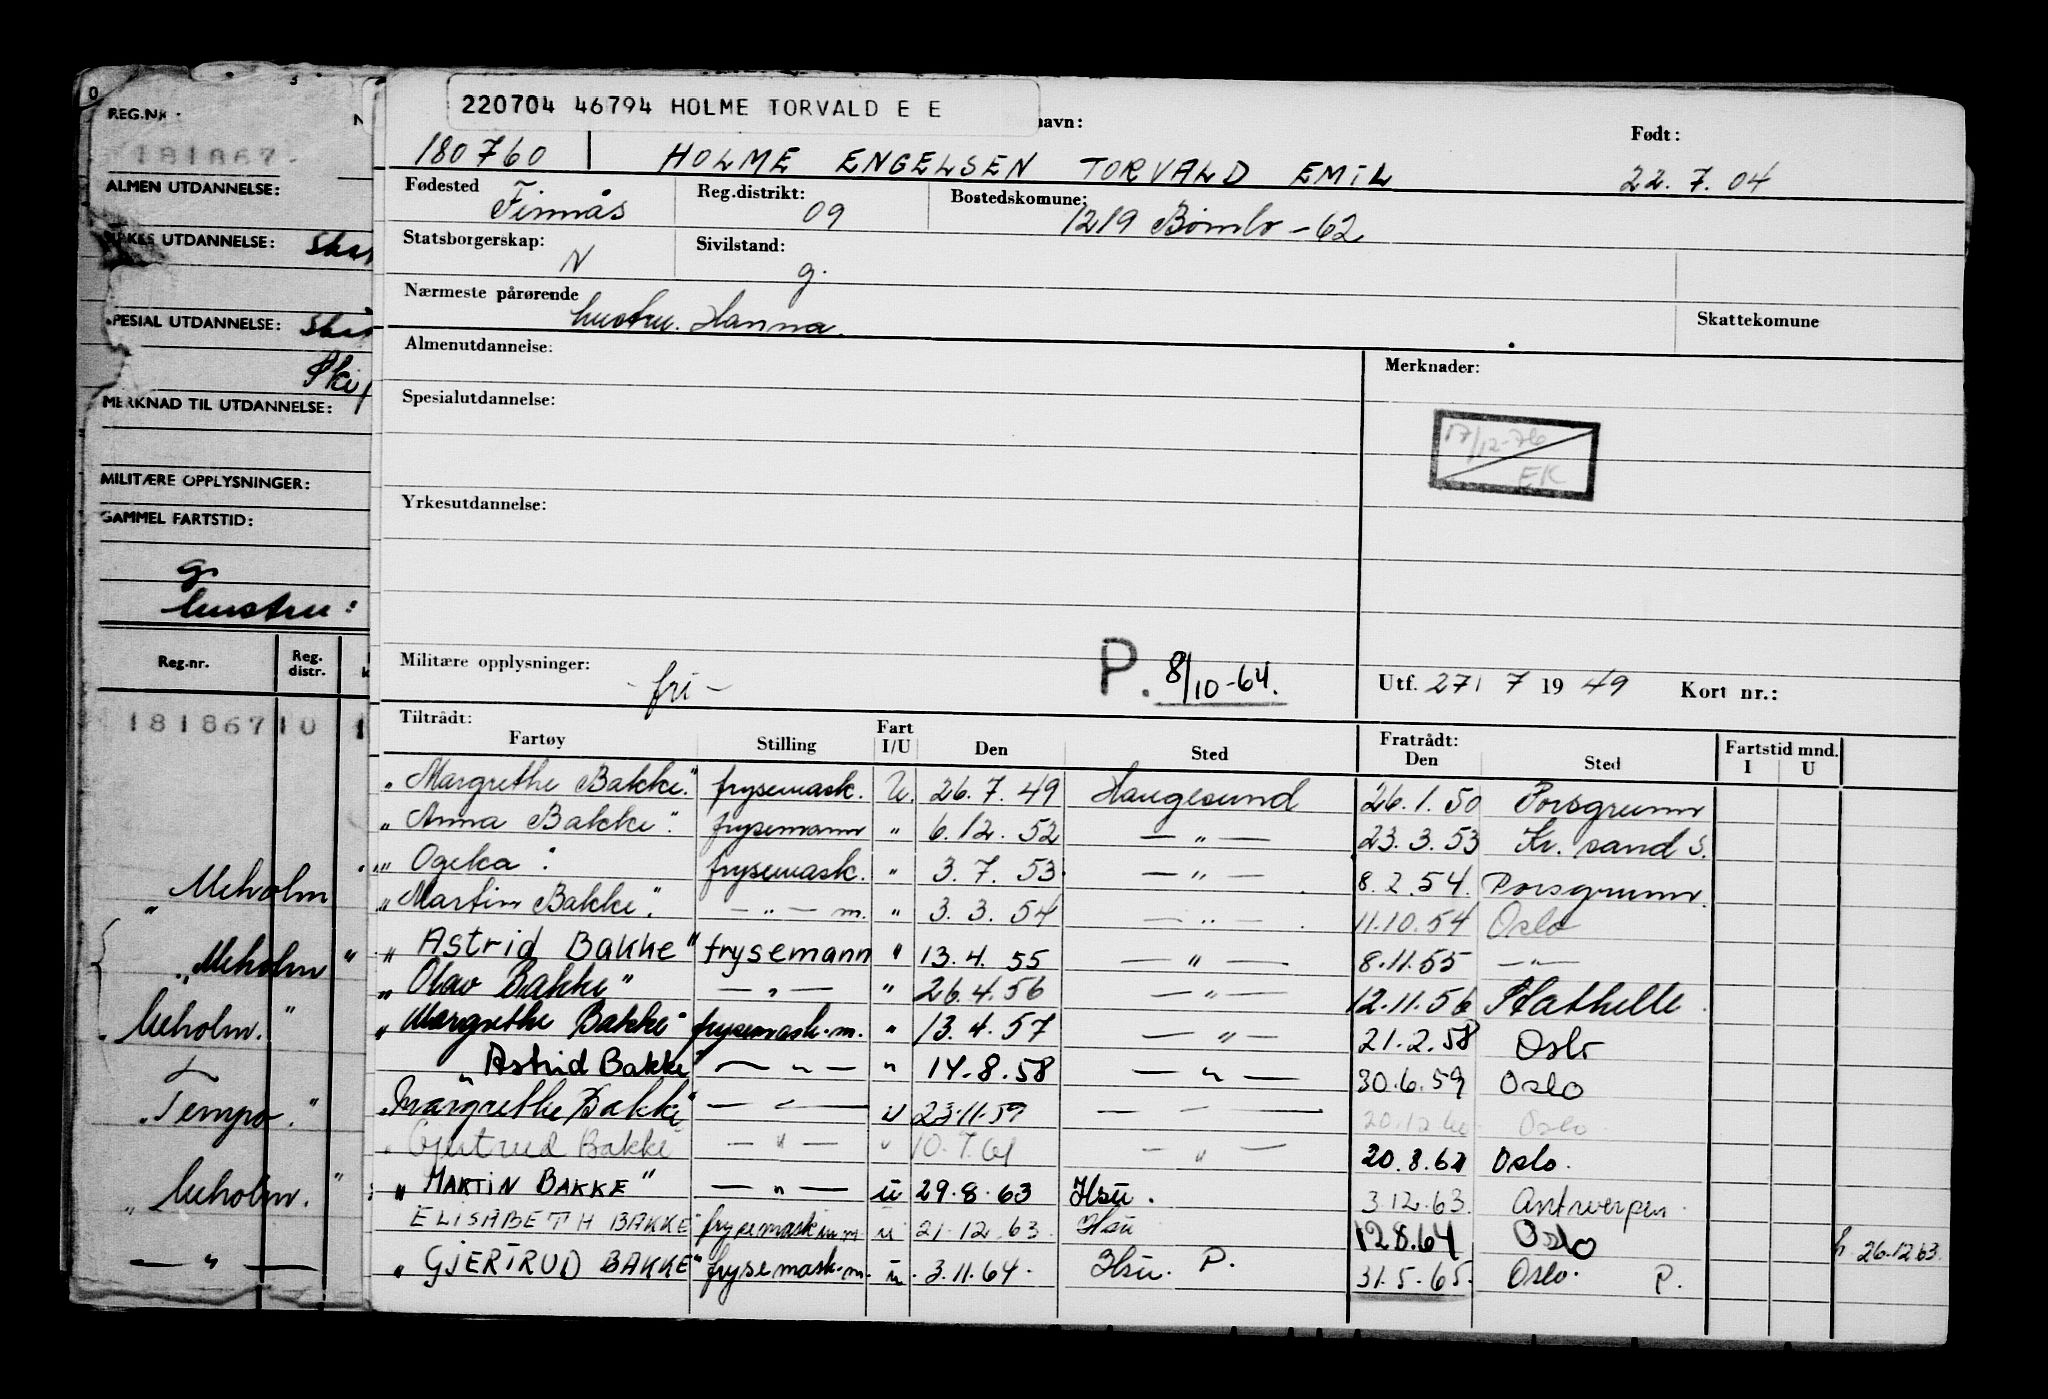 220704 46794 HOLME TORVALD E E
navn:
Født:
180760 HOLME ENGELSEN TORVALD EMIL 22. 7. 04
Fødested Finnås Reg.distrikt: 09 Bostedskomune: 1219 Bømlo - 62
Statsborgerskap: N Sivilstand: g.
Nærmeste pårørende hustru. Hanna.
Skattekomune
Almenutdannelse:
Merknader:
Spesialutdannelse:
17/12-76
EK
Yrkesutdannelse:
Militære opplysninger: - fri - P. 8/10-64.
Utf. 27/ 7 19 49 Kort nr.:
Tiltrådt: Fratrådt: Fartstid mnd.
Fartøy Stilling Fart I/U Den Sted Den Sted I U
"Margrethe Bakke." frysemask. U. 26. 7. 49 Haugesund 26. 1. 50 Porsgrunn
"Anna Bakke". frysemann " 6. 12. 52 — " — 23. 3. 53 Kr. sand S.
"Ogeka": frysemask. " 3. 7. 53. — " — 8. 2. 54. Porsgrunn.
"Martin Bakke". — " — m. " 3. 3. 54 — " — 11.10.54 Oslo
"Astrid Bakke" frysemann " 13. 4. 55 — " — 8.11.55 — " —
"Olav Bakke" — " — " 26.4.56 — " — 12.11.56 Stathelle
"Margrethe Bakke" frysemask.m. " 13. 4. 57 — " — 21.2.58 Oslo
"Astrid Bakke" — " — " 14.8.58 — " — 30.6.59 Oslo
"Margrethe Bakke" — " — u 23.11.59 — " — 20.12.60 Oslo
"Gjertrud Bakke" — " — " 10.7.61 — " — 20.8.62 Oslo.
"MARTIN BAKKE" — " — u 29.8.63 Hsu. 3.12.63. Antwerpen.
ELISABETH BAKKE" frysemaskinm u 21.12.63. Hsu 12.8.64 Oslo h. 26.12.63.
"GJERTRUD BAKKE" frysemask.m. u. 3.11.64. Hsu. P. 31.5.65. Oslo. P.
REG.NR.
181867.
ALMEN UTDANNELSE:
YRKES UTDANNELSE:
SPESIAL UTDANNELSE:
MERKNAD TIL UTDANNELSE:
MILITÆRE OPPLYSNINGER:
GAMMEL FARTSTID:
g
hustru:
Reg.nr. Reg. distr.
181867 10
"Meholm
"Meholm "
"Meholm. "
"Tempo."
"Meholm. "
— " —